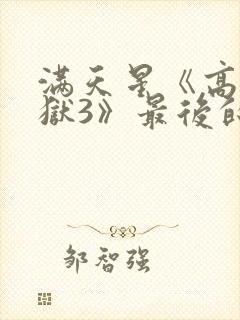 满天星《高
獄3》最後的
邹智强